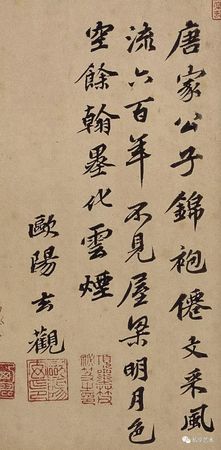 唐家公子錦袍僊文采風
流六百年不見屋梁明月色
空餘翰墨化雲煙
歐陽玄觀
私享艺术